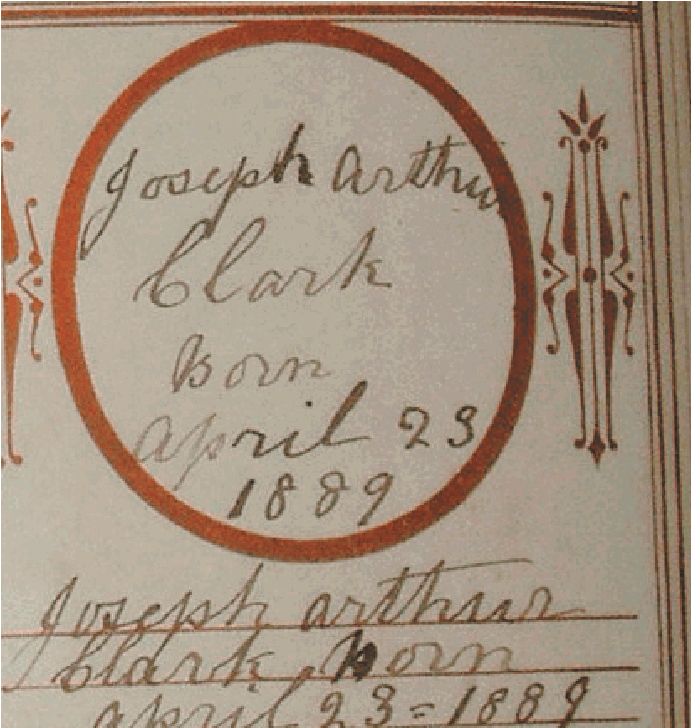 Joseph Arthur
Clark
Born
April 23
1889
Joseph arthur
Clark Born
april 23=1889